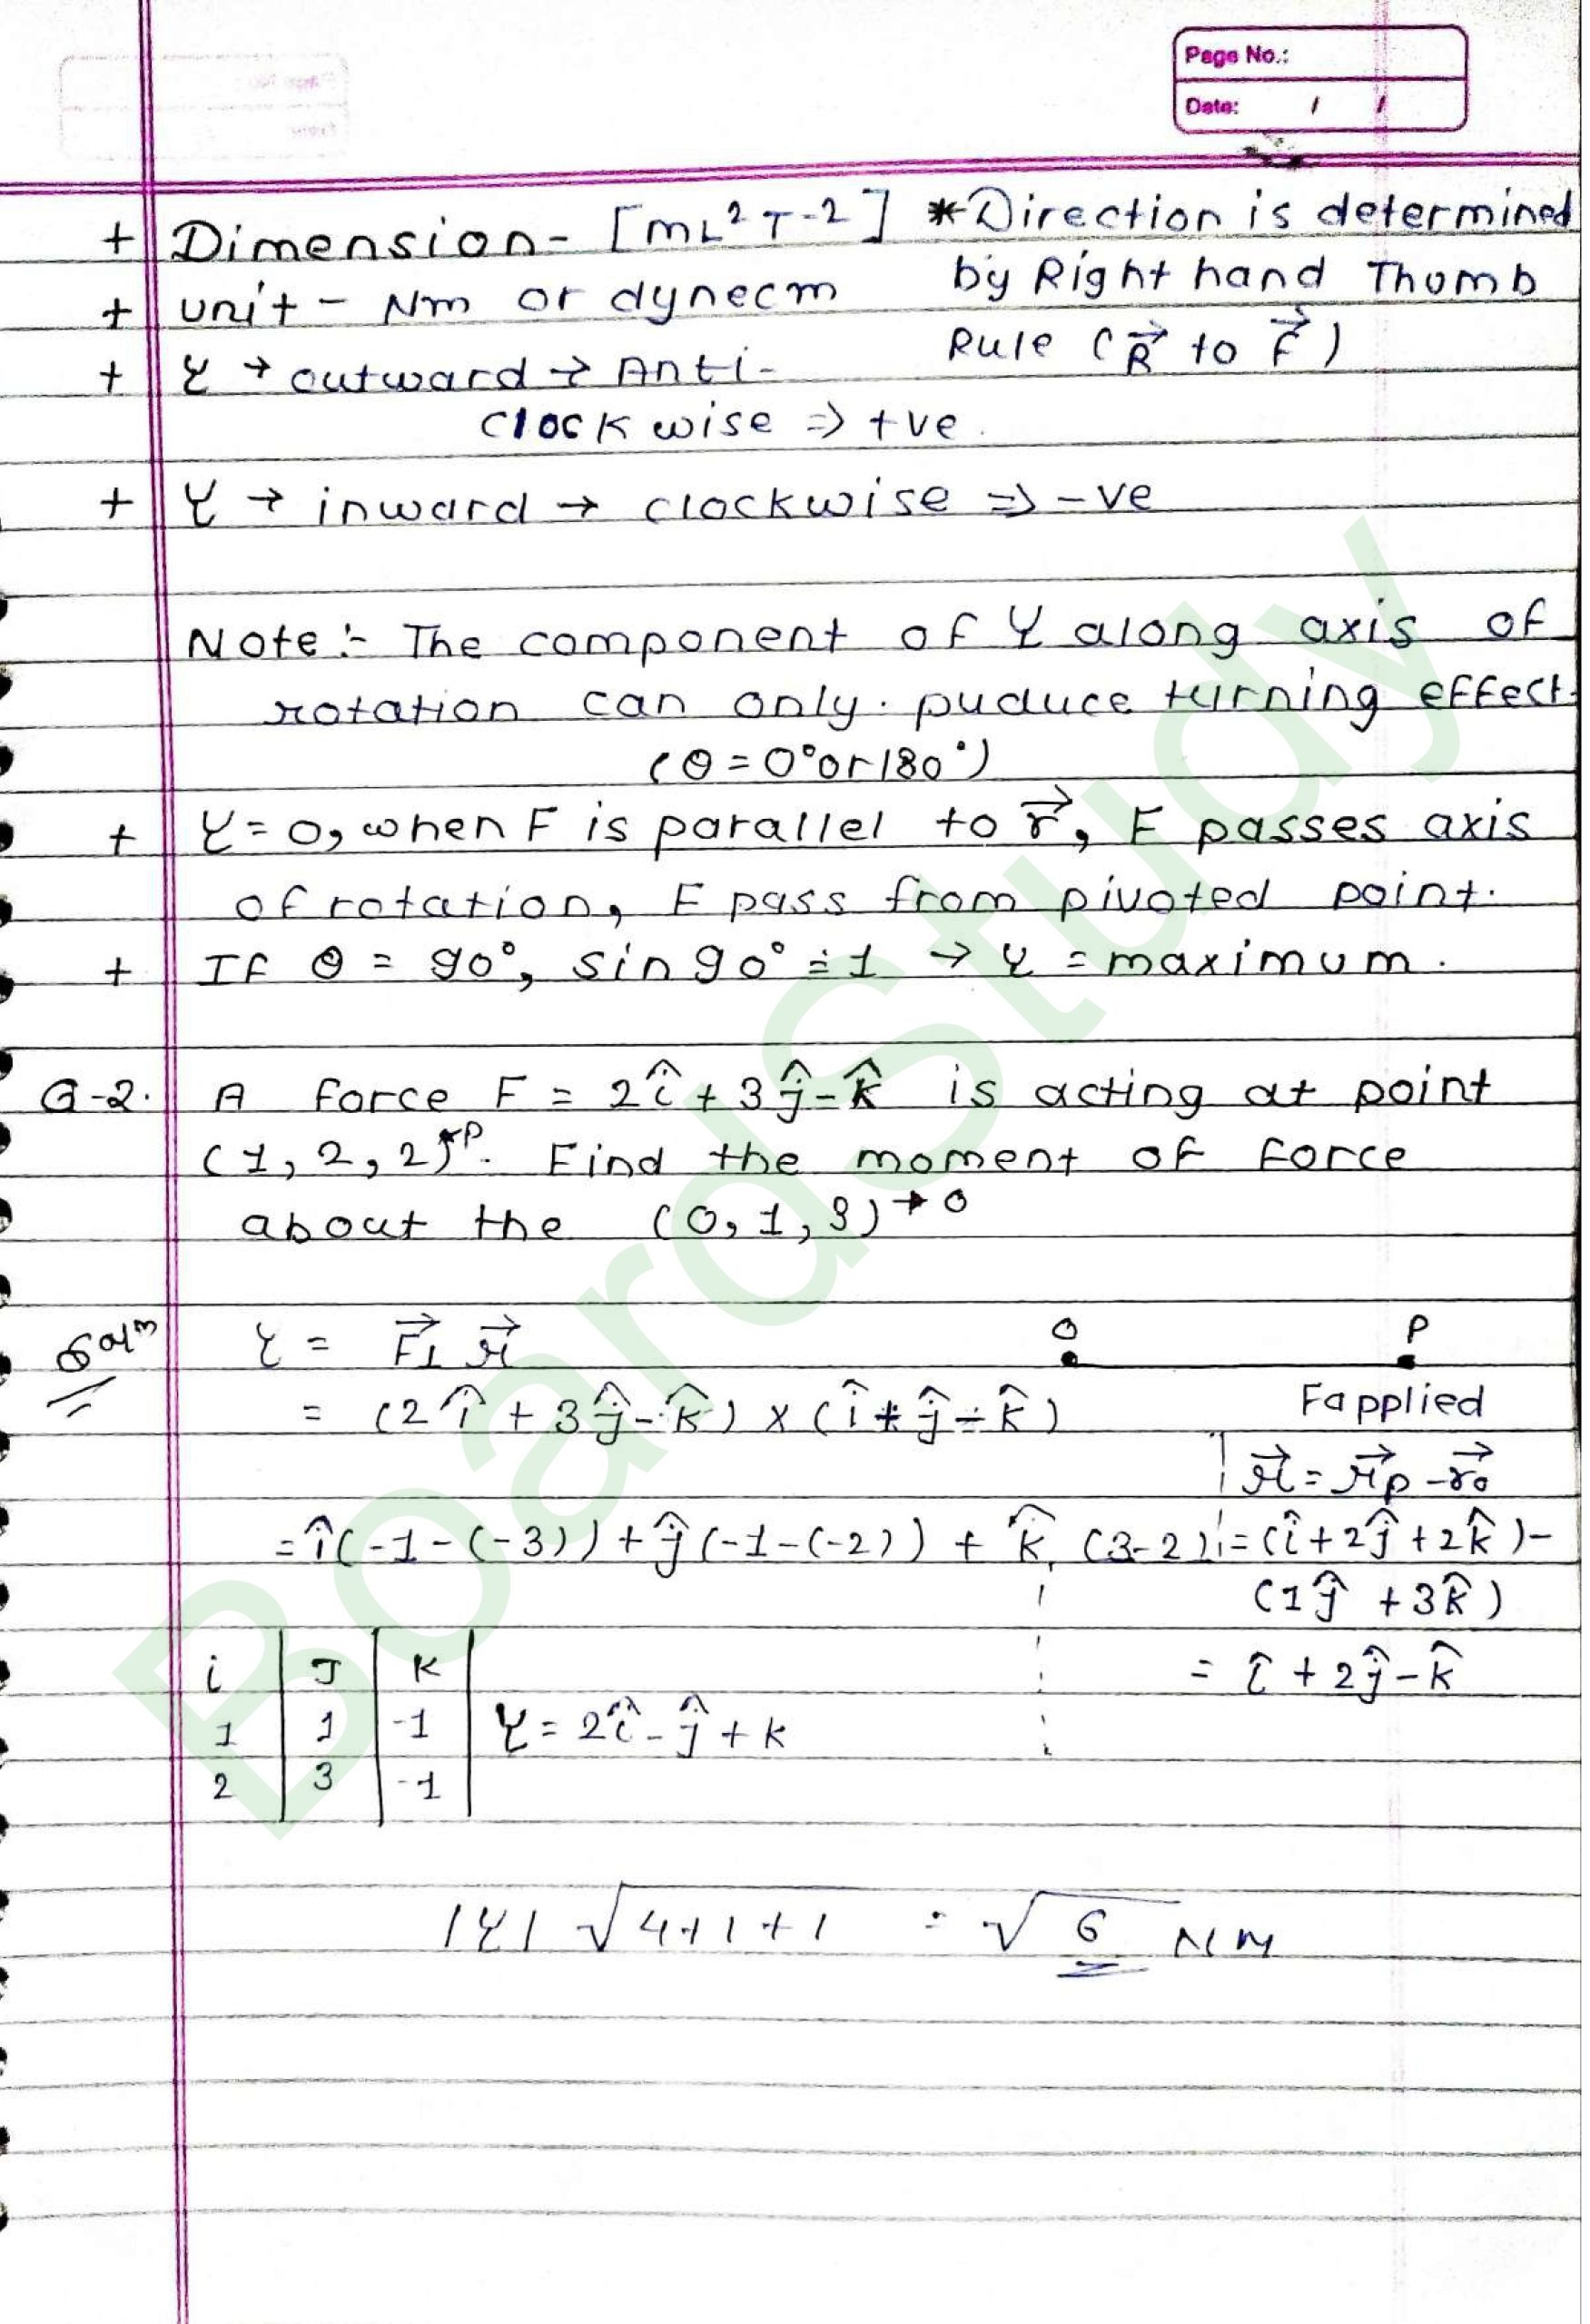 Page No.:
Date: / /
+ Dimension- [ML² T⁻²] *Direction is determined
by Right hand Thumb
Rule (R⃗ to F⃗)
+ unit - Nm or dynecm
+ τ → outward → Anti-
clockwise ⇒ +ve.
+ τ → inward → clockwise ⇒ -ve
Note:- The component of τ along axis of
rotation can only. puduce turning effect.
(θ = 0° or 180°)
+ τ = 0, when F is parallel to r⃗, F passes axis
of rotation, F pass from pivoted point.
+ If θ = 90°, sin90° = 1 → τ = maximum.
Q-2. A force F = 2î + 3ĵ - k̂ is acting at point
(1, 2, 2)→P. Find the moment of force
about the (0, 1, 3)→O
Solⁿ τ = F⃗⊥ r⃗
O P
= (2î + 3ĵ - k̂) × (î + ĵ - k̂)
F applied
r⃗ = r⃗p - r⃗o
= î(-1-(-3)) + ĵ(-1-(-2)) + k̂ (3-2)
= (î + 2ĵ + 2k̂) -
(1ĵ + 3k̂)
= î + 2ĵ - k̂
i J K
1 1 -1 τ = 2î - ĵ + k
2 3 -1
|τ| √4+1+1 = √6 Nm
BoardStudy